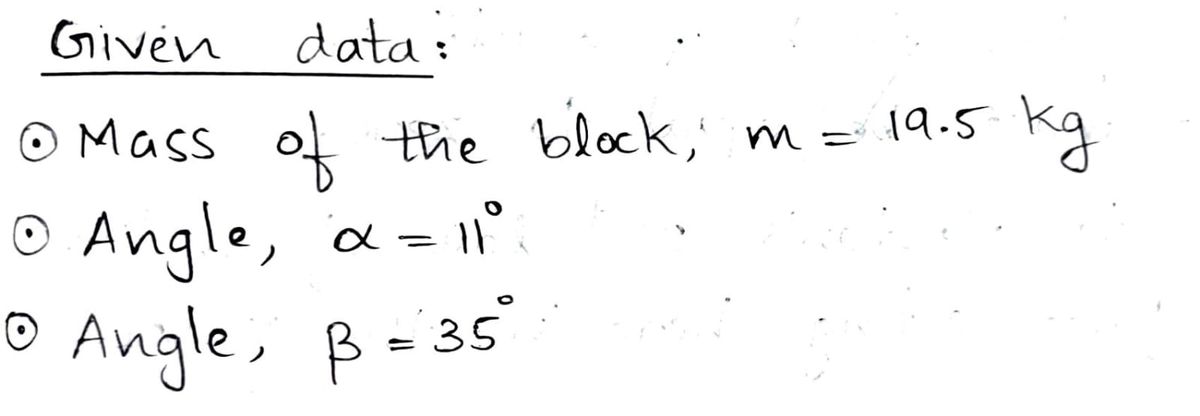 Given data:
⊙ Mass of the block, m = 19.5 kg
⊙ Angle, α = 11°
⊙ Angle, β = 35°